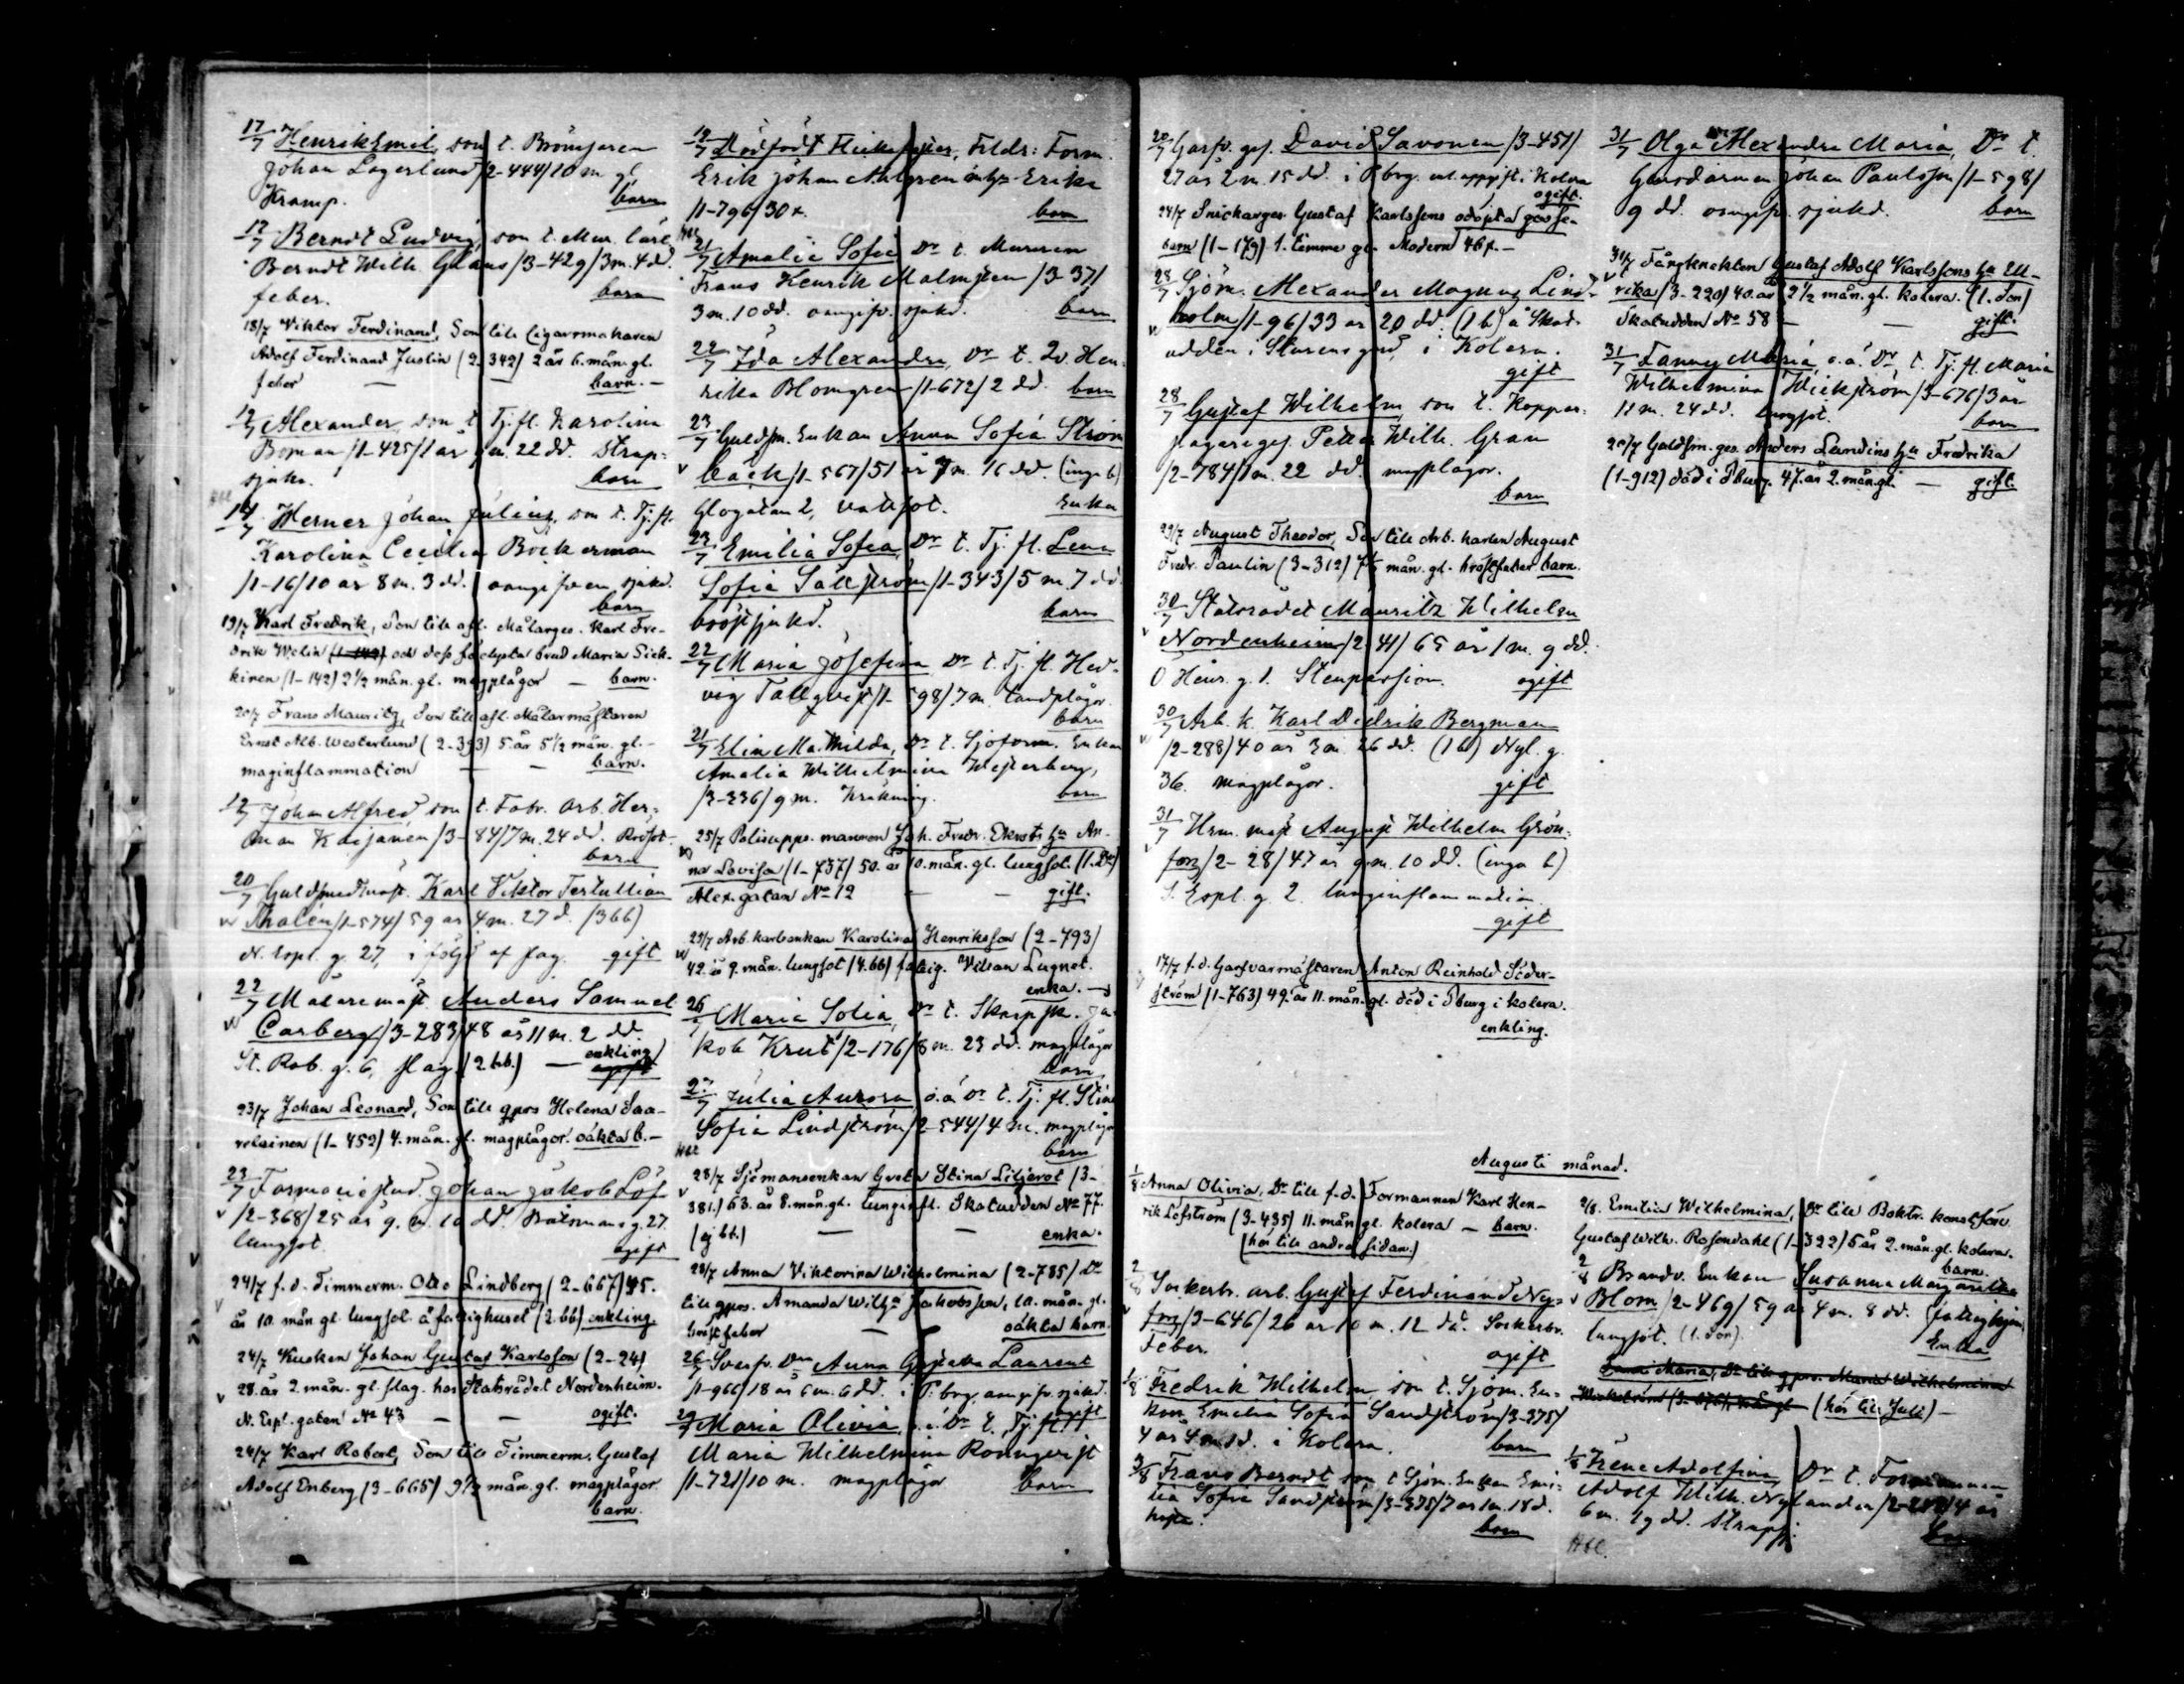 17/7 Henrik Emil, son t. Bromsaren
Johan Lagerlund /2-444/ 10 m. gl.
Kramp. barn
17/7 Berndt Ludvig, son t. Mur. lärl.
Berndt Wilh. Glans /3-429/ 3 m. 4 dd.
feber. barn
18/7 Viktor Ferdinand, Son till Cigarrmakaren
Adolf Ferdinand Justin (2-342) 2 år 6. mån. gl.
feber — barn. —
19/7 Alexander, son t. Tj. fl. Karolina
Boman /1-425/ 1 år m. 22 dd. Strup-
sjukd. barn
19/7 Herner Johan Julius, son t. Tj. fl.
Karolina Cecilia Böckerman
/1-16/ 10 år 8 m. 3 dd. oangifven sjukd.
barn
19/7 Karl Fredrik, Son till afl. Målarges. Karl Fre-
drik Welin och dess fäelysta brud Maria Sick-
kinen (1-142) 2 1/2 mån. gl. magplågor — barn.
20/7 Frans Mauritz, Son till afl. Målarmästaren
Ernst Alb. Westerlund (2-393) 5 år 5 1/2 mån. gl. —
maginflammation — — barn.
19/7 Johan Alfred, son t. Fabr. arb. Her-
man Kaijanen /3-84/ 7 m. 24 dd. Rödsot.
barn
20/7 Guldsmedmäst. Karl Viktor Tertullian
Thalen /1-574/ 59 år 4 m. 27 d. (3 bb)
N. Espl. g. 27, i följd af slag. gift
22/7 Målaremäst. Anders Samuel
Carberg /3-283/ 48 år 11 m. 2 dd
St. Rob. g. 6, slag. (2 bb.) — enkling
23/7 Johan Leonard, Son till qprs Helena Saa-
relainen (1-459) 4. mån. gl. magplågor. oäkta b. —
23/7 Farmaciestud. Johan Jakob Löf
/2-368/ 25 år 9. m. 10 dd. Båtsmans g. 27.
lungsot. ogift
24/7 f. d. Timmerm. Otto Lindberg (2-667) 45.
år 10. mån. gl. lungsot. å fattighuset (2. bb) enkling.
24/7 Kusken Johan Gustaf Karlsson (2-24)
28. år 2. mån. gl. slag. hos Statsrådet Nordenheim.
N. Espl. gatan No 43 — — ogift.
24/7 Karl Robert, Son till Timmerm. Gustaf
Adolf Enberg (3-665) 9 1/2 mån. gl. magplågor.
barn.
19/7 Dödfödt Flickebarn, Frldr: Form.
Erik Johan Ahlgren o. h. h. Erika
/1-796/ 30 r. barn
21/7 Amalia Sofia Dr t. Muraren
Frans Henrik Malmsten /3-37/
3 m. 10 dd. oangifv. sjukd. barn
22/7 Ida Alexandra, Dr t. Qv. Hen-
rika Blomgren /1-672/ 2 dd. barn
23/7 Guldsm. Enkan Anna Sofia Ström
bäck /1-567/ 51 år 7 m. 16 dd. (inga b)
Glogatan 2, vattsot. Enka
23/7 Emilia Sofia, Dr t. Tj. fl. Lena
Sofia Sällström /1-343/ 5 m. 7 dd.
bröstsjukd. barn
22/7 Maria Josefina Dr t. Tj. fl. Hed-
vig Tallqvist /1-598/ 7 m. tandplågor.
barn
21/7 Elin Mathilda, Dr t. Sjöform. Enkan
Amalia Wilhelmina Westerberg,
/3-336/ 9 m. Kräkning. barn
25/7 Polisupps. mannen Joh. Fredr. Ekrots hu An-
na Lovisa /1-737/ 50. år 10. mån. gl. lungsot. (1. Dr)
Alex. gatan No 12 — — gift.
25/7 Arb. karlsenkan Karolina Henriksson (2-793)
42. år 9. mån. lungsot (4. bb) fattig. Villan Lugnet.
enka. —
26/7 Maria Sofia, Dr t. Skarpsk. Ja-
kob Krut /2-176/ 8 m. 23 dd. magplågor
barn
27/7 Julia Aurora, o. ä. Dr t. Tj. fl. Stina
Sofia Lindström /2-544/ 4 m. magplågor
barn
28/7 Sjömansenkan Gusta Stina Liljerot /3-
381.) 63. år 8. mån. gl. lunginfl. Skatudden No 77.
(ej bb.) — — enka.
28/7 Anna Viktorina Wilhelmina (2-785) Dr
till qprs. Amanda Wilha Jakobsson, 10. mån. gl.
bröstfeber — oäkta barn.
26/7 Sverfv. Drn Anna Gustava Laurent
/1-966/ 18 år 6 m. 6 dd. i P: brg, oangifv. sjukd.
ogift
29/7 Maria Olivia, o. ä. Dr t. Tj. fl.
Maria Wilhelmina Rönnqvist
/1-721/ 10 m. magplågor barn
20/7 Garfv. ges. David Savonen /3-451/
27 år 2 m. 15 dd. i Pbrg. enl. uppgift i Kolera
ogift.
24/7 Snickarges. Gustaf Karlssons odöpta gosse-
barn (1-179) 1. timme gl. Modern 46 r. —
28/7 Sjöm. Alexander Magnus Lind-
holm /1-96/ 33 år 20 dd. (1 b) å Skat-
udden i Sturens gård, i Kolera.
gift
28/7 Gustaf Wilhelm, son t. Koppar-
slagareges. Petter Wilh. Gran
/2-784/ 1 m. 22 dd. magplågor.
barn
29/7 August Theodor, Son till Arb. karlen August
Fredr. Paulin (3-312) 7 1/2 mån. gl. bröstfeber barn.
30/7 Statsrådet Mauritz Wilhelm
Nordenheim /2-41/ 65 år 1 m. 9 dd.
Ö Henr. g. 1. Stenpassion. ogift
30/7 Arb. k. Karl Didrik Bergman
/2-288/ 40 år 3 m. 26 dd. (1 b) Nyl. g.
36. magplågor. gift
31/7 Urm. mäst August Wilhelm Grön-
fors /2-28/ 47 år 9 m. 10 dd. (inga b)
S. Espl. g. 2. lunginflammation.
gift
17/7 f. d. Garfvarmästaren Anton Reinhold Söder-
ström (1-763) 49. år 11. mån. gl. död i Pburg i kolera.
enkling.
31/7 Olga Alexandra Maria, Dr t.
Gensdarmen Johan Paulsson /1-598/
9 dd. oangifv. sjukd. barn
31/7 Fångknekten Gustaf Adolf Karlssons hu Ul-
rika /3-220/ 40. år 9 1/2 mån. gl. kolera. (1. son)
Skatudden No 58 — — gift.
31/7 Fanny Maria, o. ä. Dr, t. Tj. fl. Maria
Wilhelmina Wickström /3-676/ 3 år
11 m. 24 dd. lungsot. barn
20/7 Guldsm. ges. Anders Lundins hu Fredrika
(1-912) död i Pburg. 47. år 2. mån. gl. — gift.
Augusti månad.
1/8 Anna Olivia, Dr till f. d. Formannen Karl Hen-
rik Löfström (3-435) 11. mån gl. kolera — barn.
(hör till andra sidan.)
2/8 Sockerbr. arb. Gustaf Ferdinand Ny-
fors /3-646/ 26 år 10 m. 12 dd. Sockerbr.
Feber. ogift
1/8 Fredrik Wilhelm, son t. Sjöm. En-
kan Emelia Sofia Sandström /3-375/
4 år 4 m. 1 d. i Kolera. barn
3/8 Frans Berndt son t. Sjöm. Enkan Emi-
lia Sofia Sandström /3-375/ 7 år 1 m. 18 d.
barn
2/8. Emilia Wilhelmina, Dr till Boktr. konstförv.
Gustaf Wilh. Rosendahl (1-322) 5 år 2. mån. gl. kolera.
barn.
2/8 Brandv. Enkan Susanna Margaretha
Blom /2-469/ 59 år 4 m. 8 dd. fattighjon
lungsot. (1. son). Enka
Fanni Maria, Dr till qprs. Maria Wilhelmina
Wickström (hör till Juli) —
1/8 Irene Adolfina, Dr t. Formannen
Adolf Wilh. Nylander 4 år
6 m. 19 dd. Strupsj.